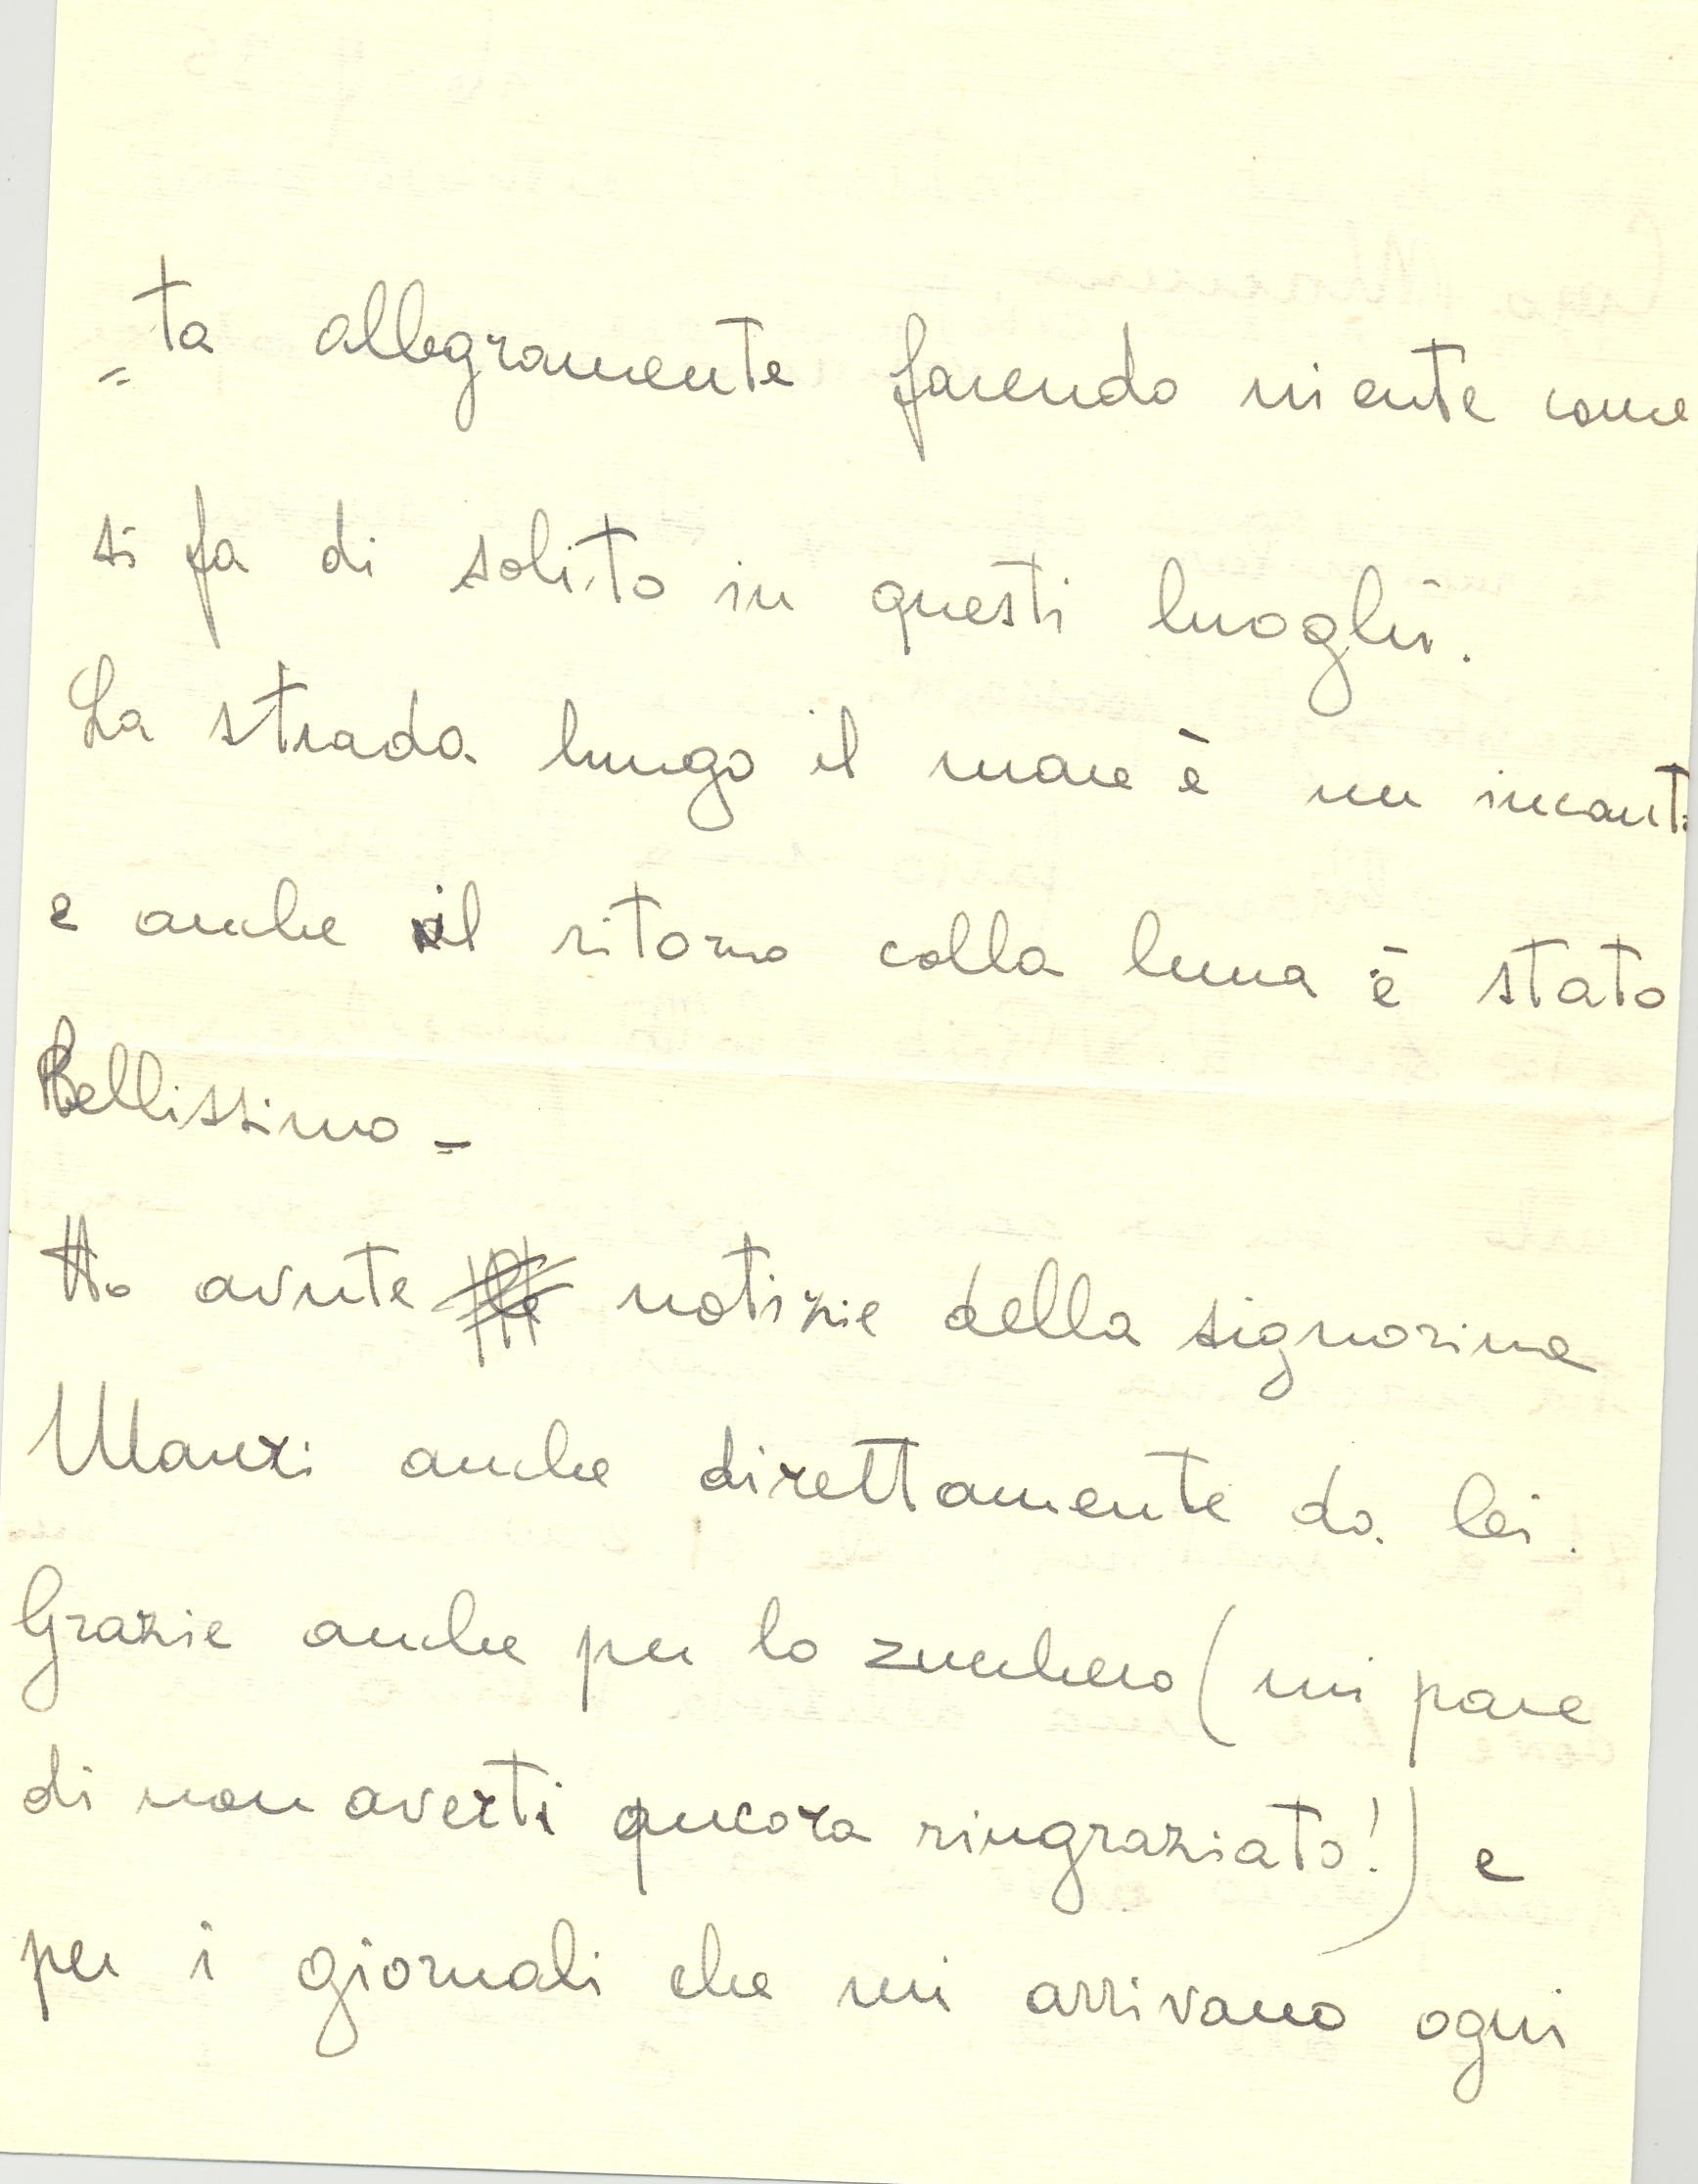 =ta allegramente facendo niente come
si fa di solito in questi luoghi.
La strada lungo il mare è un incant
e anche il ritorno colla luna è stato
Bellissimo =
Ho avute notizie della signorina
Manzi anche direttamente da lei.
Grazie anche per lo zucchero (mi pare
di non averti ancora ringraziato!) e
per i giornali che mi arrivano ogni